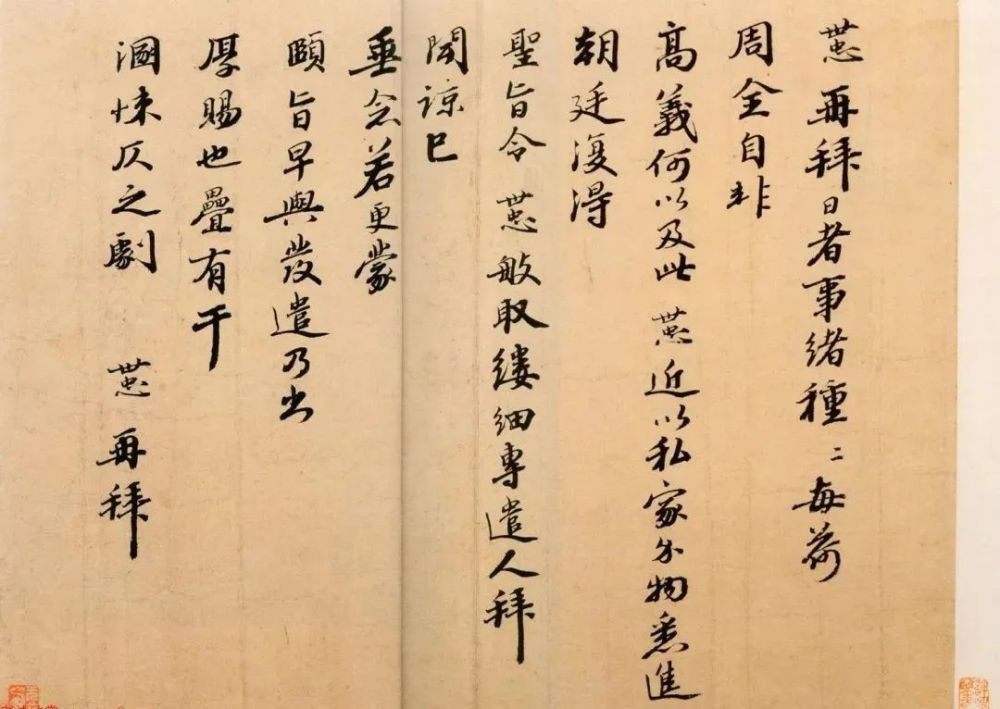 懃再拜日者事緒種〻每荷
周全自非
高義何以及此 懃近以私家分物悉進
朝廷復得
聖旨令 懃敏取縷細專遣人拜
聞諒已
垂念若更蒙
頤旨早與發遣乃出
厚賜也疊有干
溷悚仄之劇 懃再拜